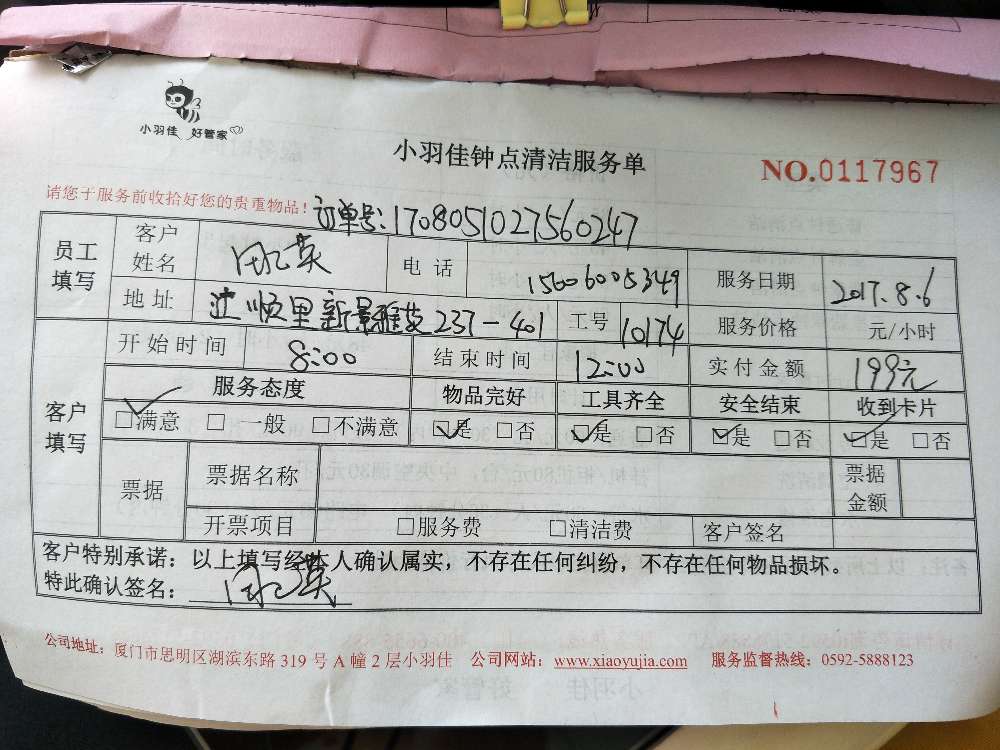 小羽佳 好管家
小羽佳钟点清洁服务单
NO.0117967
请您于服务前收拾好您的贵重物品！
订单号：1708051027560247
员工填写
客户姓名
电 话 15606005349
服务日期 2017.8.6
地 址 顺里新景雅苑237-401
工号 10174
服务价格 元/小时
客户填写
开始时间 8:00
结束时间 12:00
实付金额 199元
服务态度 物品完好 工具齐全 安全结束 收到卡片
□满意 □一般 □不满意 □是 □否 □是 □否 □是 □否 □是 □否
票据
票据名称
票据金额
开票项目 □服务费 □清洁费 客户签名
客户特别承诺：以上填写经本人确认属实，不存在任何纠纷，不存在任何物品损坏。
特此确认签名：
公司地址：厦门市思明区湖滨东路 319 号 A 幢 2 层小羽佳 公司网站：www.xiaoyujia.com 服务监督热线：0592-5888123